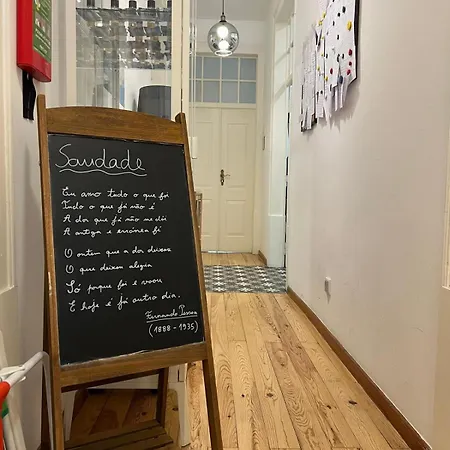 Saudade
Eu amo tudo o que foi
Tudo o que já não é
A dor que já não me dói
A antiga e errónea fé
O ontem que a dor deixou
O que deixou alegria
Só porque foi e voou
E hoje é já outro dia.
Fernando Pessoa
(1888-1935)